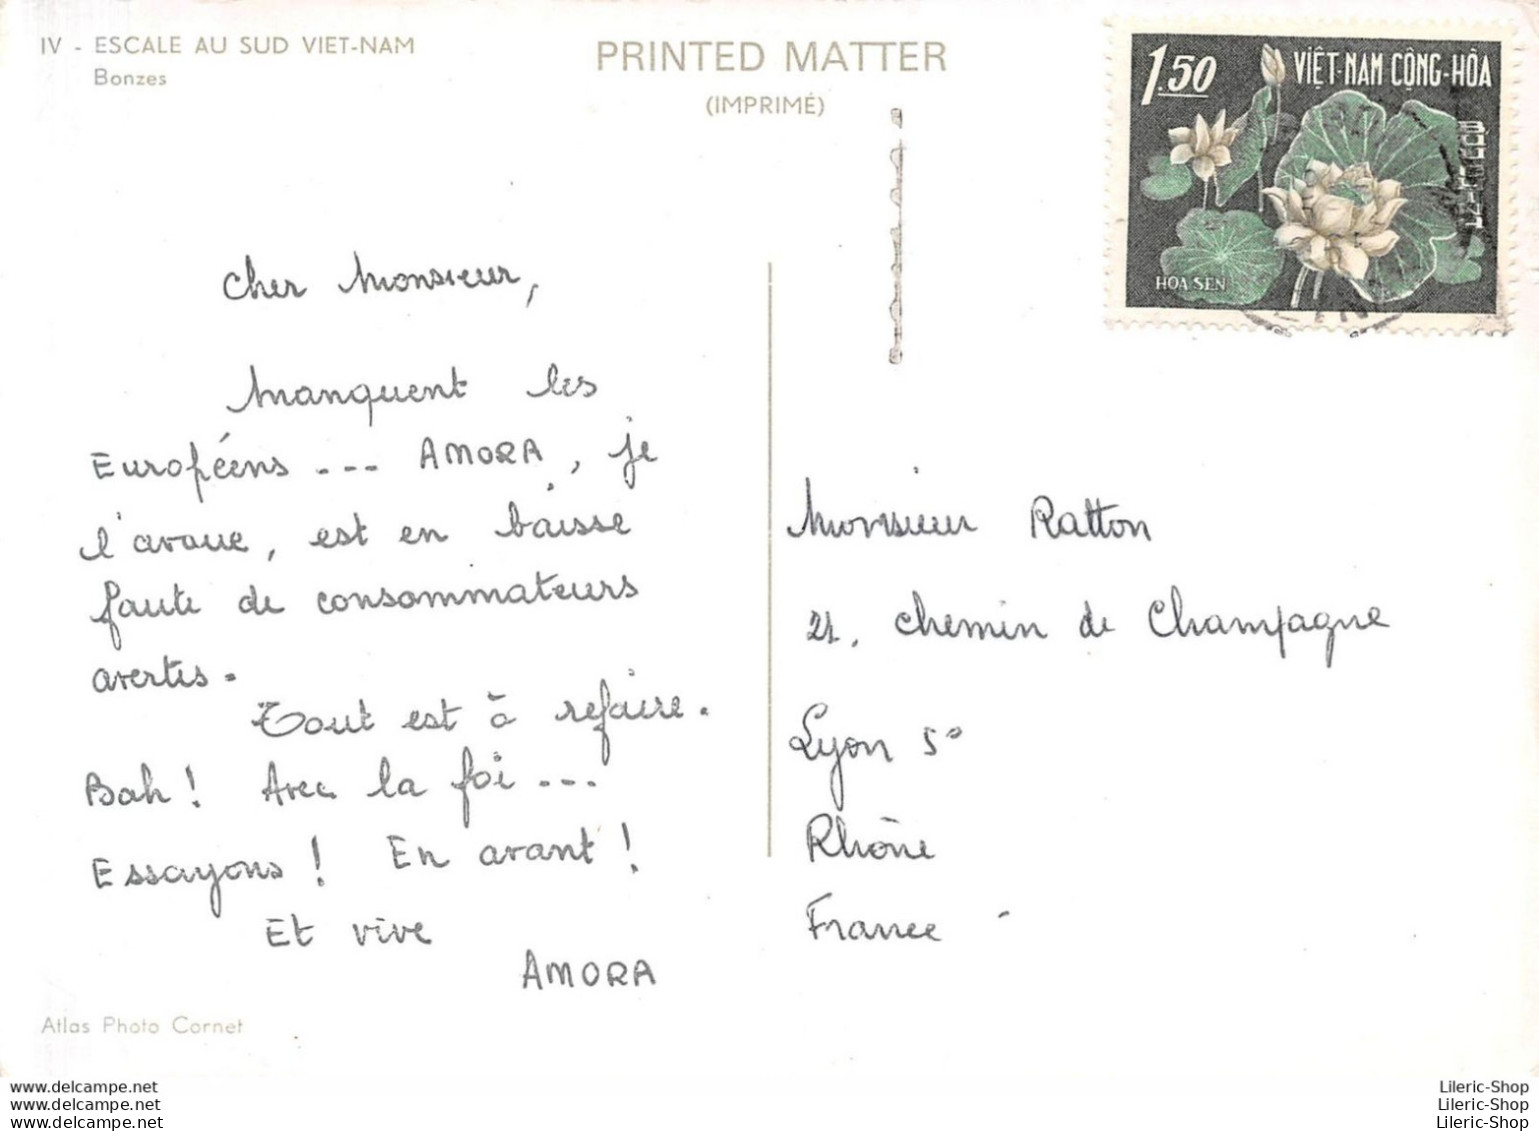 IV - ESCALE AU SUD VIET-NAM
Bonzes
PRINTED MATTER
(IMPRIMÉ)
1.50
VIỆT-NAM CỘNG-HÒA
BƯU-CHÍNH
HOA SEN
Cher Monsieur,
Manquent les
Européens --- AMORA, je
l'avoue, est en baisse
faute de consommateurs
avertis.
Tout est à refaire.
Bah ! Avec la foi ---
Essayons ! En avant !
Et vive
AMORA
Monsieur Ratton
21, chemin de Champagne
Lyon 5°
Rhône
France
Atlas Photo Cornet
www.delcampe.net
www.delcampe.net
www.delcampe.net
Lileric-Shop
Lileric-Shop
Lileric-Shop